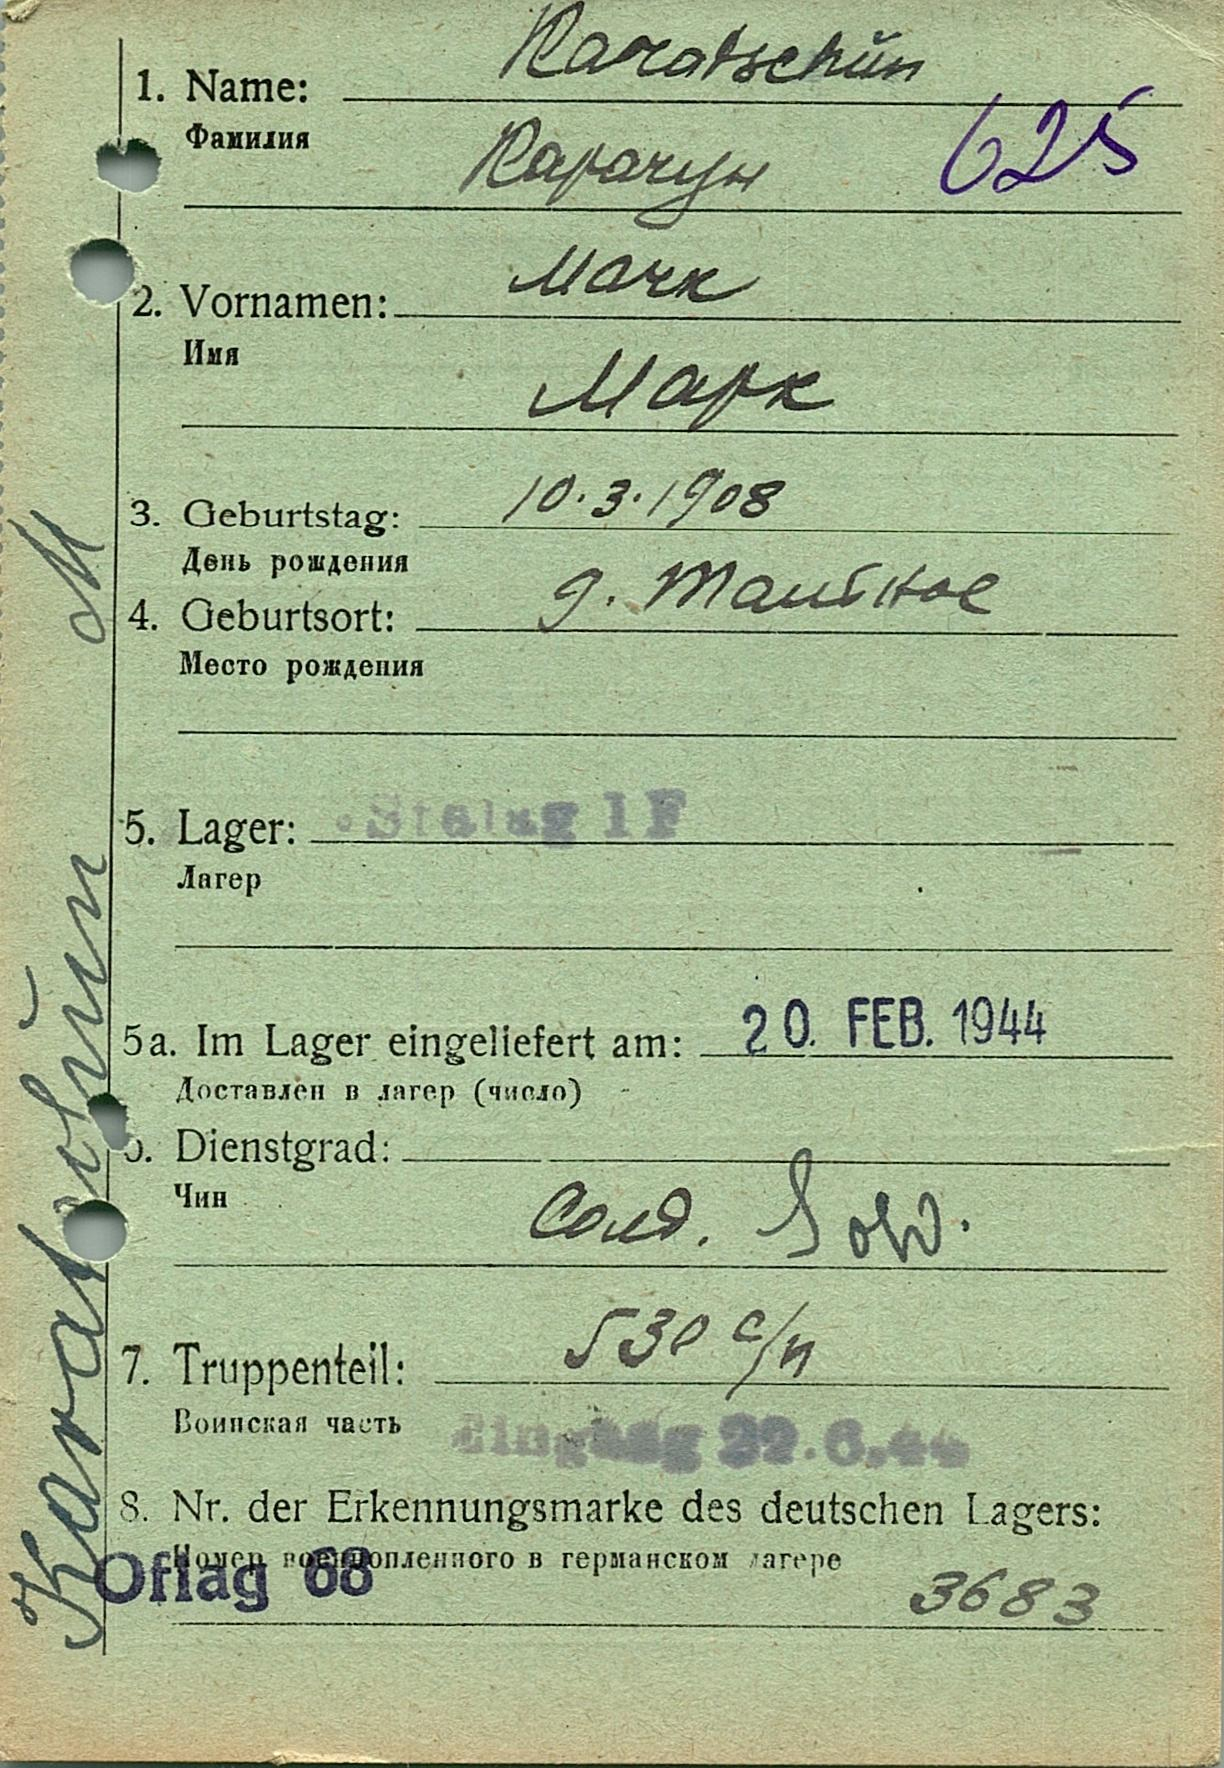 Karatschün
1. Name:
Фамилия
Карачун
625
Марк
2. Vornamen:
Имя
Марк
3. Geburtstag: 10.3.1908
День рождения
4. Geburtsort: д.
Место рождения
5. Lager: Stalag 1 F
Лагер
5a. Im Lager eingeliefert am: 20. FEB. 1944
Доставлен в лагер (число)
Dienstgrad:
Чин
Солд. Sold.
7. Truppenteil: 530 с/п
Воинская часть
Eingang 22.6.44
8. Nr. der Erkennungsmarke des deutschen Lagers:
Номер военнопленного в германском лагере
Oflag 68
3683
Karatschün M